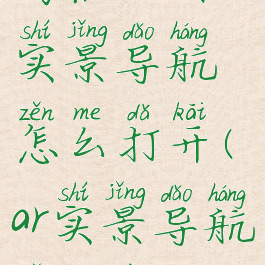 shí jǐng dǎo háng
实景导航
zěn me dǎ kāi
怎么打开(
shí jǐng dǎo háng
ar实景导航